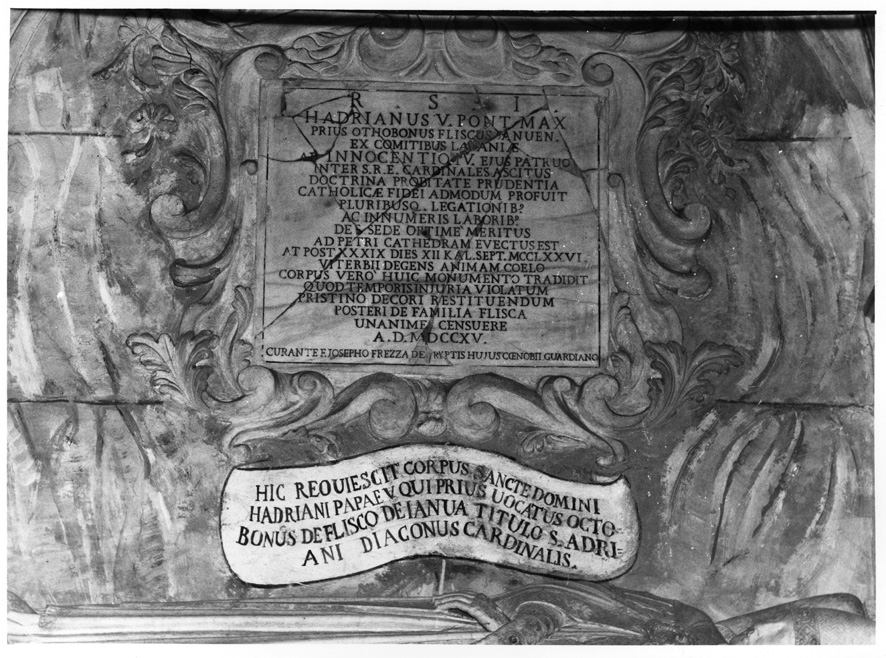 R. S. I.
HADRIANUS V. PONT MAX
PRIUS OTHOBONUS FLISCUS IANUEN.
EX COMITIBUS LAVANIÆ
AB INNOCENTIO IV. EJUS PATRUO
INTER S.R.E. CARDINALES ASCITUS
DOCTRINA PROBITATE PRUDENTIA
CATHOLICÆ FIDEI ADMODUM PROFUIT
PLURIBUSQ. LEGATIONIB?
AC INNUMERIS LABORIB?
DE S. SEDE OPTIME MERITUS
AD PETRI CATHEDRAM EVECTUS EST
AT POST XXXIX DIES XII KAL. SEPT. MCCLXXVI.
VITERBII DEGENS ANIMAM COELO
CORPUS VERO HUIC MONUMENTO TRADIDIT
QUOD TEMPORIS INJURIA VIOLATUM
PRISTINO DECORI RESTITUENDUM
POSTERI DE FAMILIA FLISCA
UNANIME CENSUERE
A.D. MDCCXV.
CURANTE F. IOSEPHO FREZZA DE CRYPTIS HUJUS CŒNOBII GUARDIANO
HIC REQUIESCIT CORPUS SANCTE DOMINI
HADRIANI PAPAE V QUI PRIUS UOCATUS OCTO-
BONUS DE FLISCO DE IANUA TITULO S. ADRI-
ANI DIACONUS CARDINALIS.